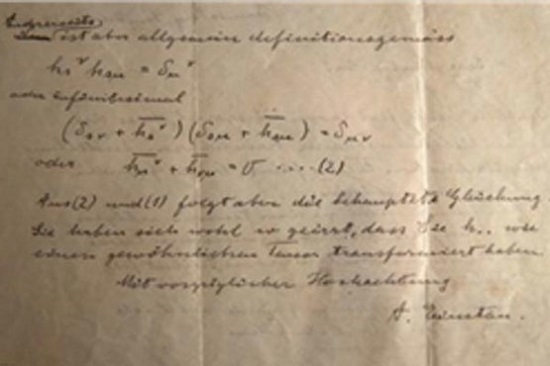 Andererseits
ist aber allgemein definitionsgemäss
h_s^ν h_{sμ} = δ_μ^ν
oder infinitesimal
(δ_{sν} + h̄_s^ν) (δ_{sμ} + h̄_{sμ}) = δ_{μν}
oder h̄_μ^ν + h̄_{νμ} = 0 ....(2)
Aus (2) und (1) folgt aber die behauptete Gleichung
Sie haben sich wohl so geirrt, dass Sie h.. wie
einen gewöhnlichen Tensor transformiert haben.
Mit vorzüglicher Hochachtung
A. Einstein.